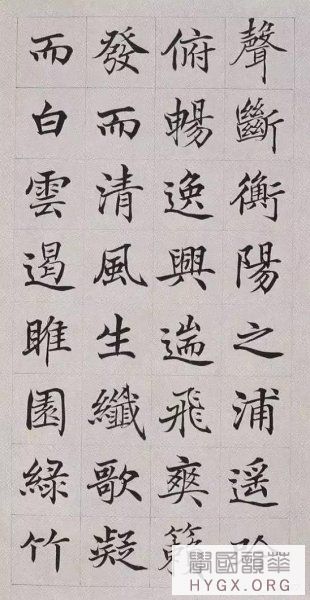 聲斷衡陽之浦遥吟
俯暢逸興遄飛爽籟
發而清風生纖歌凝
而白雲遏睢園綠竹
學國韻華
HYGX.ORG